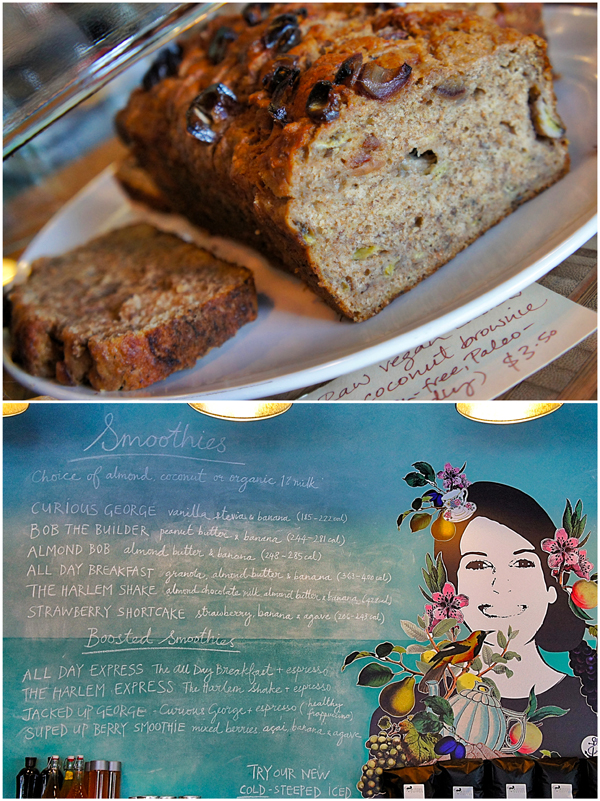 Raw vegan
coconut brownie
-free, Paleo-
$3.50
Smoothies
Choice of almond, coconut or organic 1% milk
CURIOUS GEORGE vanilla stevia & banana (185-222cal)
BOB THE BUILDER peanut butter & banana (244-281 cal)
ALMOND BOB almond butter & banana (248-285 cal)
ALL DAY BREAKFAST granola, almond butter & banana
THE HARLEM SHAKE almond chocolate milk almond butter & banana
STRAWBERRY SHORTCAKE strawberry, banana & agave
Boosted Smoothies
ALL DAY EXPRESS The All Day Breakfast + espresso
THE HARLEM EXPRESS The Harlem Shake + espresso
JACKED UP GEORGE Curious George + espresso (healthy
frappuccino)
SUPED UP BERRY SMOOTHIE mixed berries, açai, banana & agave
TRY OUR NEW
COLD-STEEPED ICED